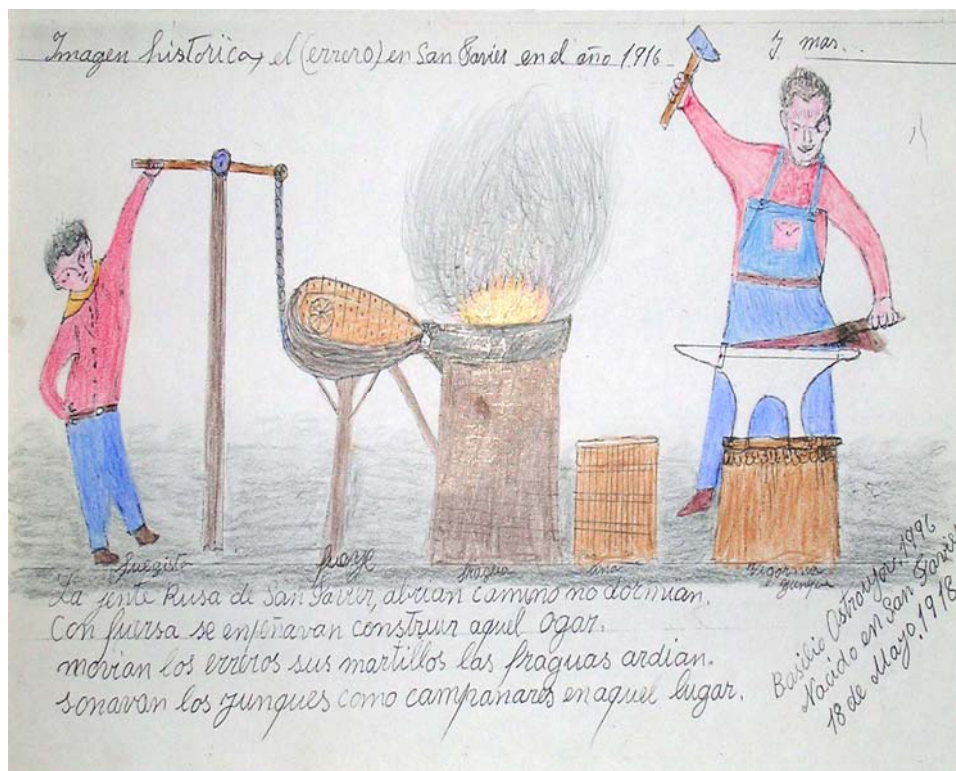 Imagen historica, el (errero) en San Javier en el año 1916. Y mas...
fueguista fuaye fragua tina vigornia yunque
La jente Rusa de San Javier, abrian camino no dormian.
Con fuersa se enpeñavan construir aquel Ogar.
movian los erreros sus martillos las fraguas ardian.
sonavan los yunques como campanares en aquel lugar.
Basilio 1996
Nacido en San Javier
18 de Mayo. 1918